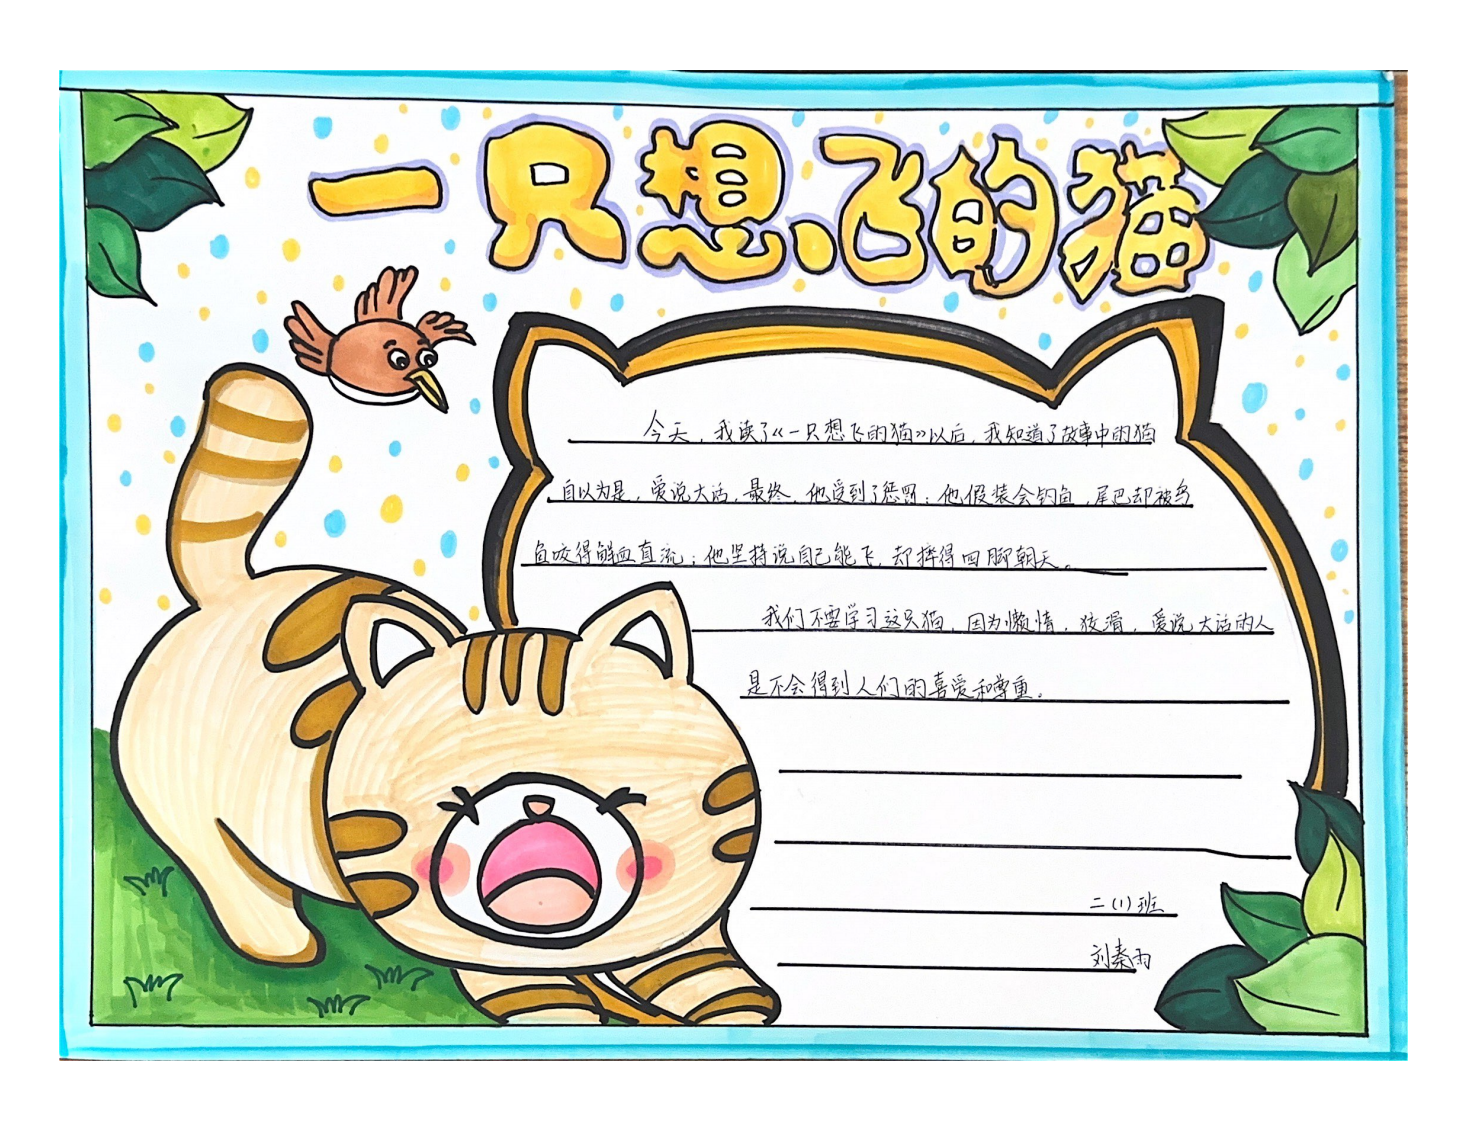 一只想飞的猫
今天，我读了《一只想飞的猫》以后，我知道了故事中的猫
自以为是，爱说大话，最终，他受到了惩罚：他假装会钓鱼，尾巴却被乌
鱼咬得鲜血直流；他坚持说自己能飞，却摔得四脚朝天。
我们不要学习这只猫，因为懒惰，狡滑，爱说大话的人
是不会得到人们的喜爱和尊重。
二（1）班
刘秦雨